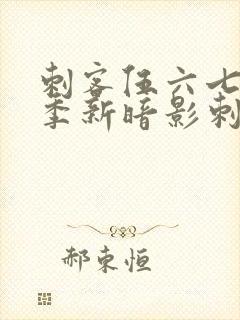 刺客伍六七
季新暗影刺
郝东恒